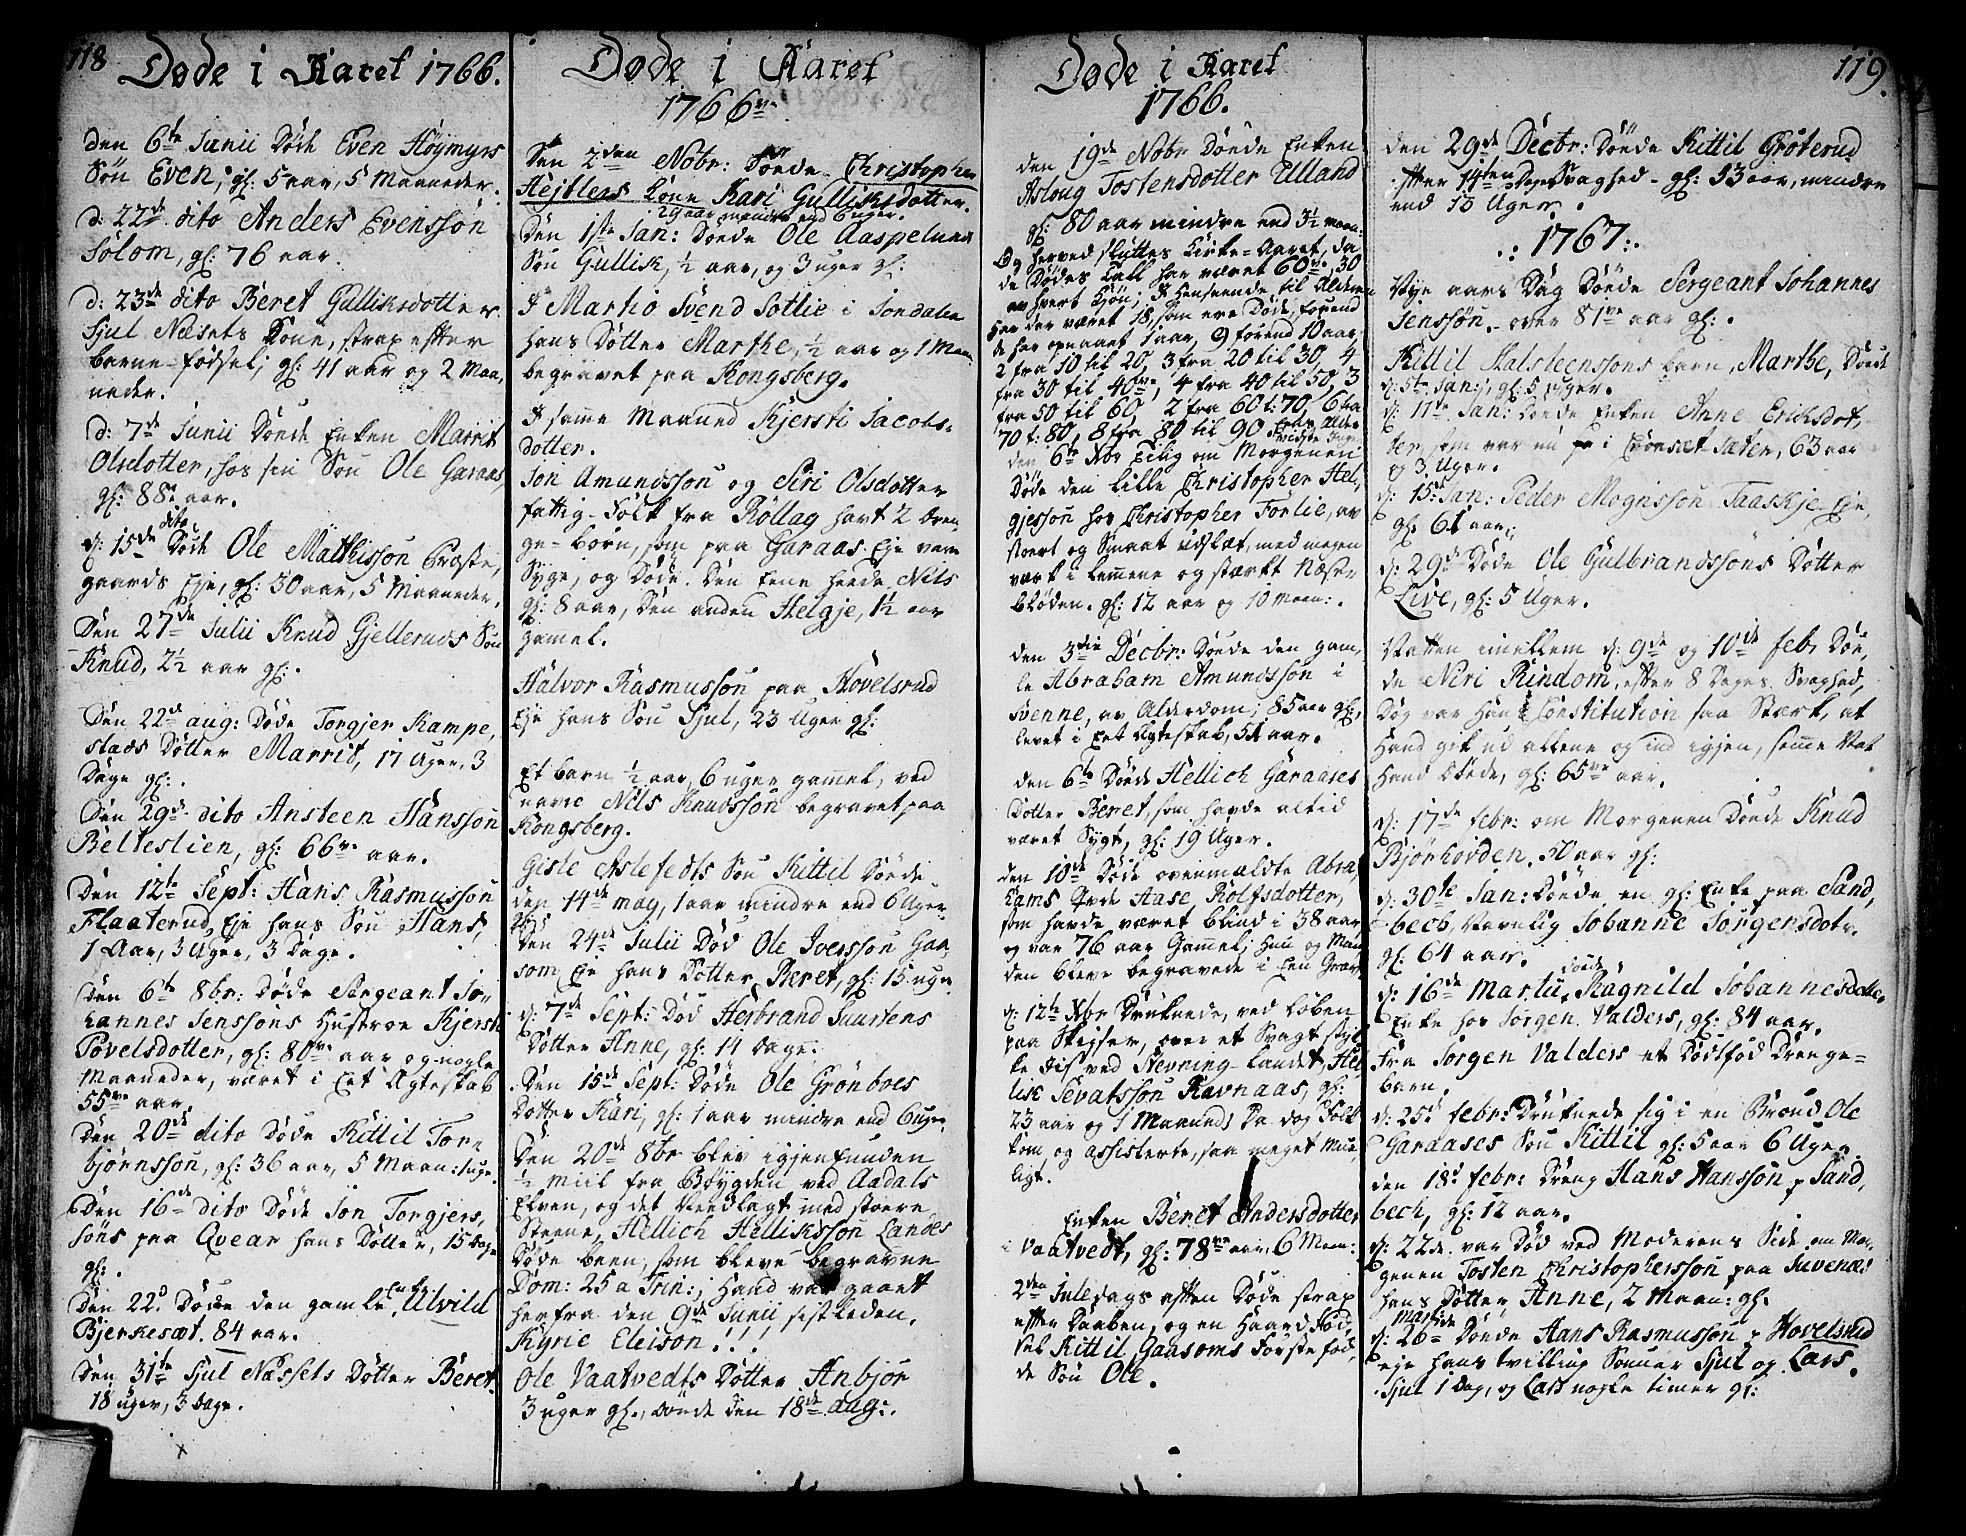 118
Døde i Aaret 1766.
den 6te Junii Døde Even Høymyrs
Søn Even, gl: 5 aar, 5 Maaneder.
d: 22de dito Anders Evenssøn
Solom, gl: 76 aar.
d: 23de dito Beret Gulliksdotter
Sjul Næsets Kone, strax efter
barne-fødsel; gl: 41 aar og 2 Maa,
neder.
d: 7de Junii Døde Enken Marrit
Olsdotter, hos sin Søn Ole Garaas,
gl: 88 aar.
d: 15de dito Døde Ole Matthissøn Præste,
gaards Eje, gl: 30 aar, 5 Maaneder,
Den 27de Julii Knud Gjelleruds Søn
Knud, 2½ aar gl:.
Den 22de aug: Døde Torgjer Kampe,
stads Dotter Marrit, 17 Uger, 3
Dage gl:.
Den 29de dito Ansteen Hanssøn
Belteslien, gl: 66ve aar.
Den 12te Sept: Hans Rasmussøn
Flaaterud Eje hans Søn Hans,
1 Aar, 3 Uger, 3 Dage.
Den 6te 8br: Døde Sergeant Jo,,
hannes Jenssøns Hustroe Kjersti
Povelsdotter, gl: 80ve aar og nogle
Maaneder, været i Eet Ægteskab
55ve aar
Den 20de dito Døde Kittil Tor,
bjørnssøn, gl: 36 aar, 5 Maan: 1 uge.
Den 16de dito Døde Jon Torgjers,
søns paa Qvear hans Dotter, 15 Dage
gl:.
Den 22d Døde den gamle Enke Ulvild
Bjerkesæt. 84 aar.
Den 31te Sjul Næssets Dotter Beret
18 uger, 3 Dage.
Døde i Aaret
1766ve
Den 2den Nobr: Døede Christopher
Hejtlers Kone Kari Gulliksdotter.
29 aar mindre end 6 uger.
Den 1ste Jan: Døede Ole Aaspelund
Søn Gullik, ½ aar, og 3 uger gl:
I Martio Svend Sotlie i Jondalen
hans Dotter Marthe, ½ aar og 1 Maan
begravet paa Kongsberg.
I samme Maaned Kjersti Jacobs=
dotter.
Jon Amundssøn og Siri Olsdotter
fattig-Folk fra Rollag havt 2 Dren,
ge-børn, som paa Garaas Eje vare
Syge, og Døde. Den Eene heede Nils
gl: 8 aar, Den anden Helgje, 1½ aar
gamel.
Halvor Rasmussøn paa Hovelsrud
Eje hans Søn Sjul, 23 Uger gl:
Et barn ½ aar, 6 uger gammel, ved
navn Nils Knudssøn begravet paa
Kongsberg.
Gisle Aslefedts Søn Kittil Døede
den 14de may, 1 aar mindre end 6 Uger
Den 24de Julii Død Ole Iverssøn Gaa
som Eje hans Dotter Beret, gl: 15 uger
d: 7de Sept: Død Herbrand Suurtens
Dotter Anne, gl: 14 Dage.
Den 15de Sept: Døde Ole Grønboes
Dotter Kari, gl: 1 aar mindre end 6 uger.
Den 20de 8br blev igjenfunden
½ Miil fra Bøygden ved Aadals
Elven, og det Needlagt med stoere
Steene, Hellich Helliksson Landes
Døde been, som bleve begravne
Dom: 25 a Trin:; Hand var gaaet
herfra den 9de Junii sistleden.
Kyrie Eleison!!!
Ole Vaatvedts Dotter Anbjør
3 uger gl., Døede den 18de aug:.
Døde i Aaret
1766.
den 19de Nobr Døede Enken
Asloug Tostensdotter Elland
gl: 80 aar mindre end 3½ maan:
Og herved sluttes Kirke-Aaret, da
de Dødes Tall har været 60ve, 30
av hvert Kjøn; I Henseende til Alderen
har der været 18, som ere Døde, førend
de har opnaaet 1 aar, 9 førend 10 aar,
2 fra 10 til 20, 3 fra 20 til 30, 4
fra 30 til 40ve, 4 fra 40 til 50, 3
fra 50 til 60, 2 fra 60 t: 70, 6 fra
70 t: 80, 8 fra 80 til 90.
den 6te Xbr tilig om Morgenen
Døde den lille Christopher Hel,
gjessøn hos Christopher Forlie, av
stoert og Smaat udslæt, med megen
værk i Lemmene og stærkt Næse
Bløden. gl: 12 aar og 10 Maan:.
den 3die Decbr: Døede den gam,
le Abraham Amundssøn i
Svenne, av Alderdom; 85 aar gl:,
levet i Eet Ægteskab, 51 aar.
den 6te Døede Hellich Garaases
Dotter Beret, som havde altid
været Sygt, gl: 19 Uger.
den 10de Døde ovenmældte Abra,
hams Enke Aase Rolfsdotter,
som havde været blind i 38 aar,
og var 76 aar Gammel; Hun og Man
den bleve begravede i Een Grav.
d: 12te Xbr Druknede, ved Løben
paa Skejser, over et Svagt styk
ke Jis ved Nevning-Landet, Hel
lik Tevatssøn Ravnaas, gl:
23 aar og 1 Maaned; Da dog Folk
kom og assisterte, saa meget Mue,
ligt.
Enken Beret Andersdotter
i Vaatvedt, gl: 78ve aar, 6 Maan:
2den Juledags aften Døde strax
efter Daaben, og en Haard Fød,
sel Kittil Gaasoms Første fød,
de Søn Ole.
119.
den 29de Decbr: Døede Kittil Groterud
efter 14ten Dages Svaghed - gl: 53 aar, mindre
end 13 Uger.
.: 1767:.
Nye aars Dag Døede Sergeant Johannes
Jenssøn, over 81ve aar gl:.
Kittil Halsteenssøns barn, Marthe, Døede
d: 5te Jan:, gl: 5 Uger.
d: 11te Jan: Døede Enken Anne Eriksdot,
ter, som var nu i Trønsæt-Sæter, 63 aar
og 3 Uger.
d: 15de Jan: Peder Mognssøn Taaskje Eje,
gl: 61 aar,
d: 29de Døde Ole Gulbrandssøns Dotter
Live, gl: 5 Uger.
Natten imellem d: 9de og 10de feb, Døe,
de Niri Rindom, efter 8 Dages Svaghed,
Dog var Hans Constitution saa Stærk, at
Hand gik ud allene og ind igjen, samme Nat
Hand Døede, gl: 65ve aar.
d: 17de febr: om Morgenen Døede Knud
Bjørhovden, 50 aar gl:
d: 30te Jan: Døede en gl: Enke paa Sand,
bech, Navnlig Johanne Jørgensdotr.
gl: 64 aar.
d: 16de Martii døede Ragnild Johannesdotter
Enke hos Jørgen Valders, gl: 84 aar.
Fra Jørgen Valders et Dødfød Drenge=
barn.
d: 25de febr: Druknede sig i en Brønd Ole
Garaases Søn Kittil gl: 5 aar 6 Uger.
den 18d febr: Dreng Hans Hanssøn p Sand,
bech, gl: 12 aar.
d: 22de var Død ved Moderens Side om Mor,
genen Tosten Christopherssøn paa Juvenæs
hans Dotter Anne, 2 Maan: gl:
d: 26de Martii Døede Hans Rasmussøn p Hovelsrud
eje hans tvilling Sønner Sjul og Lars.
Sjul 1 Dag, og Lars nogle timer gl: